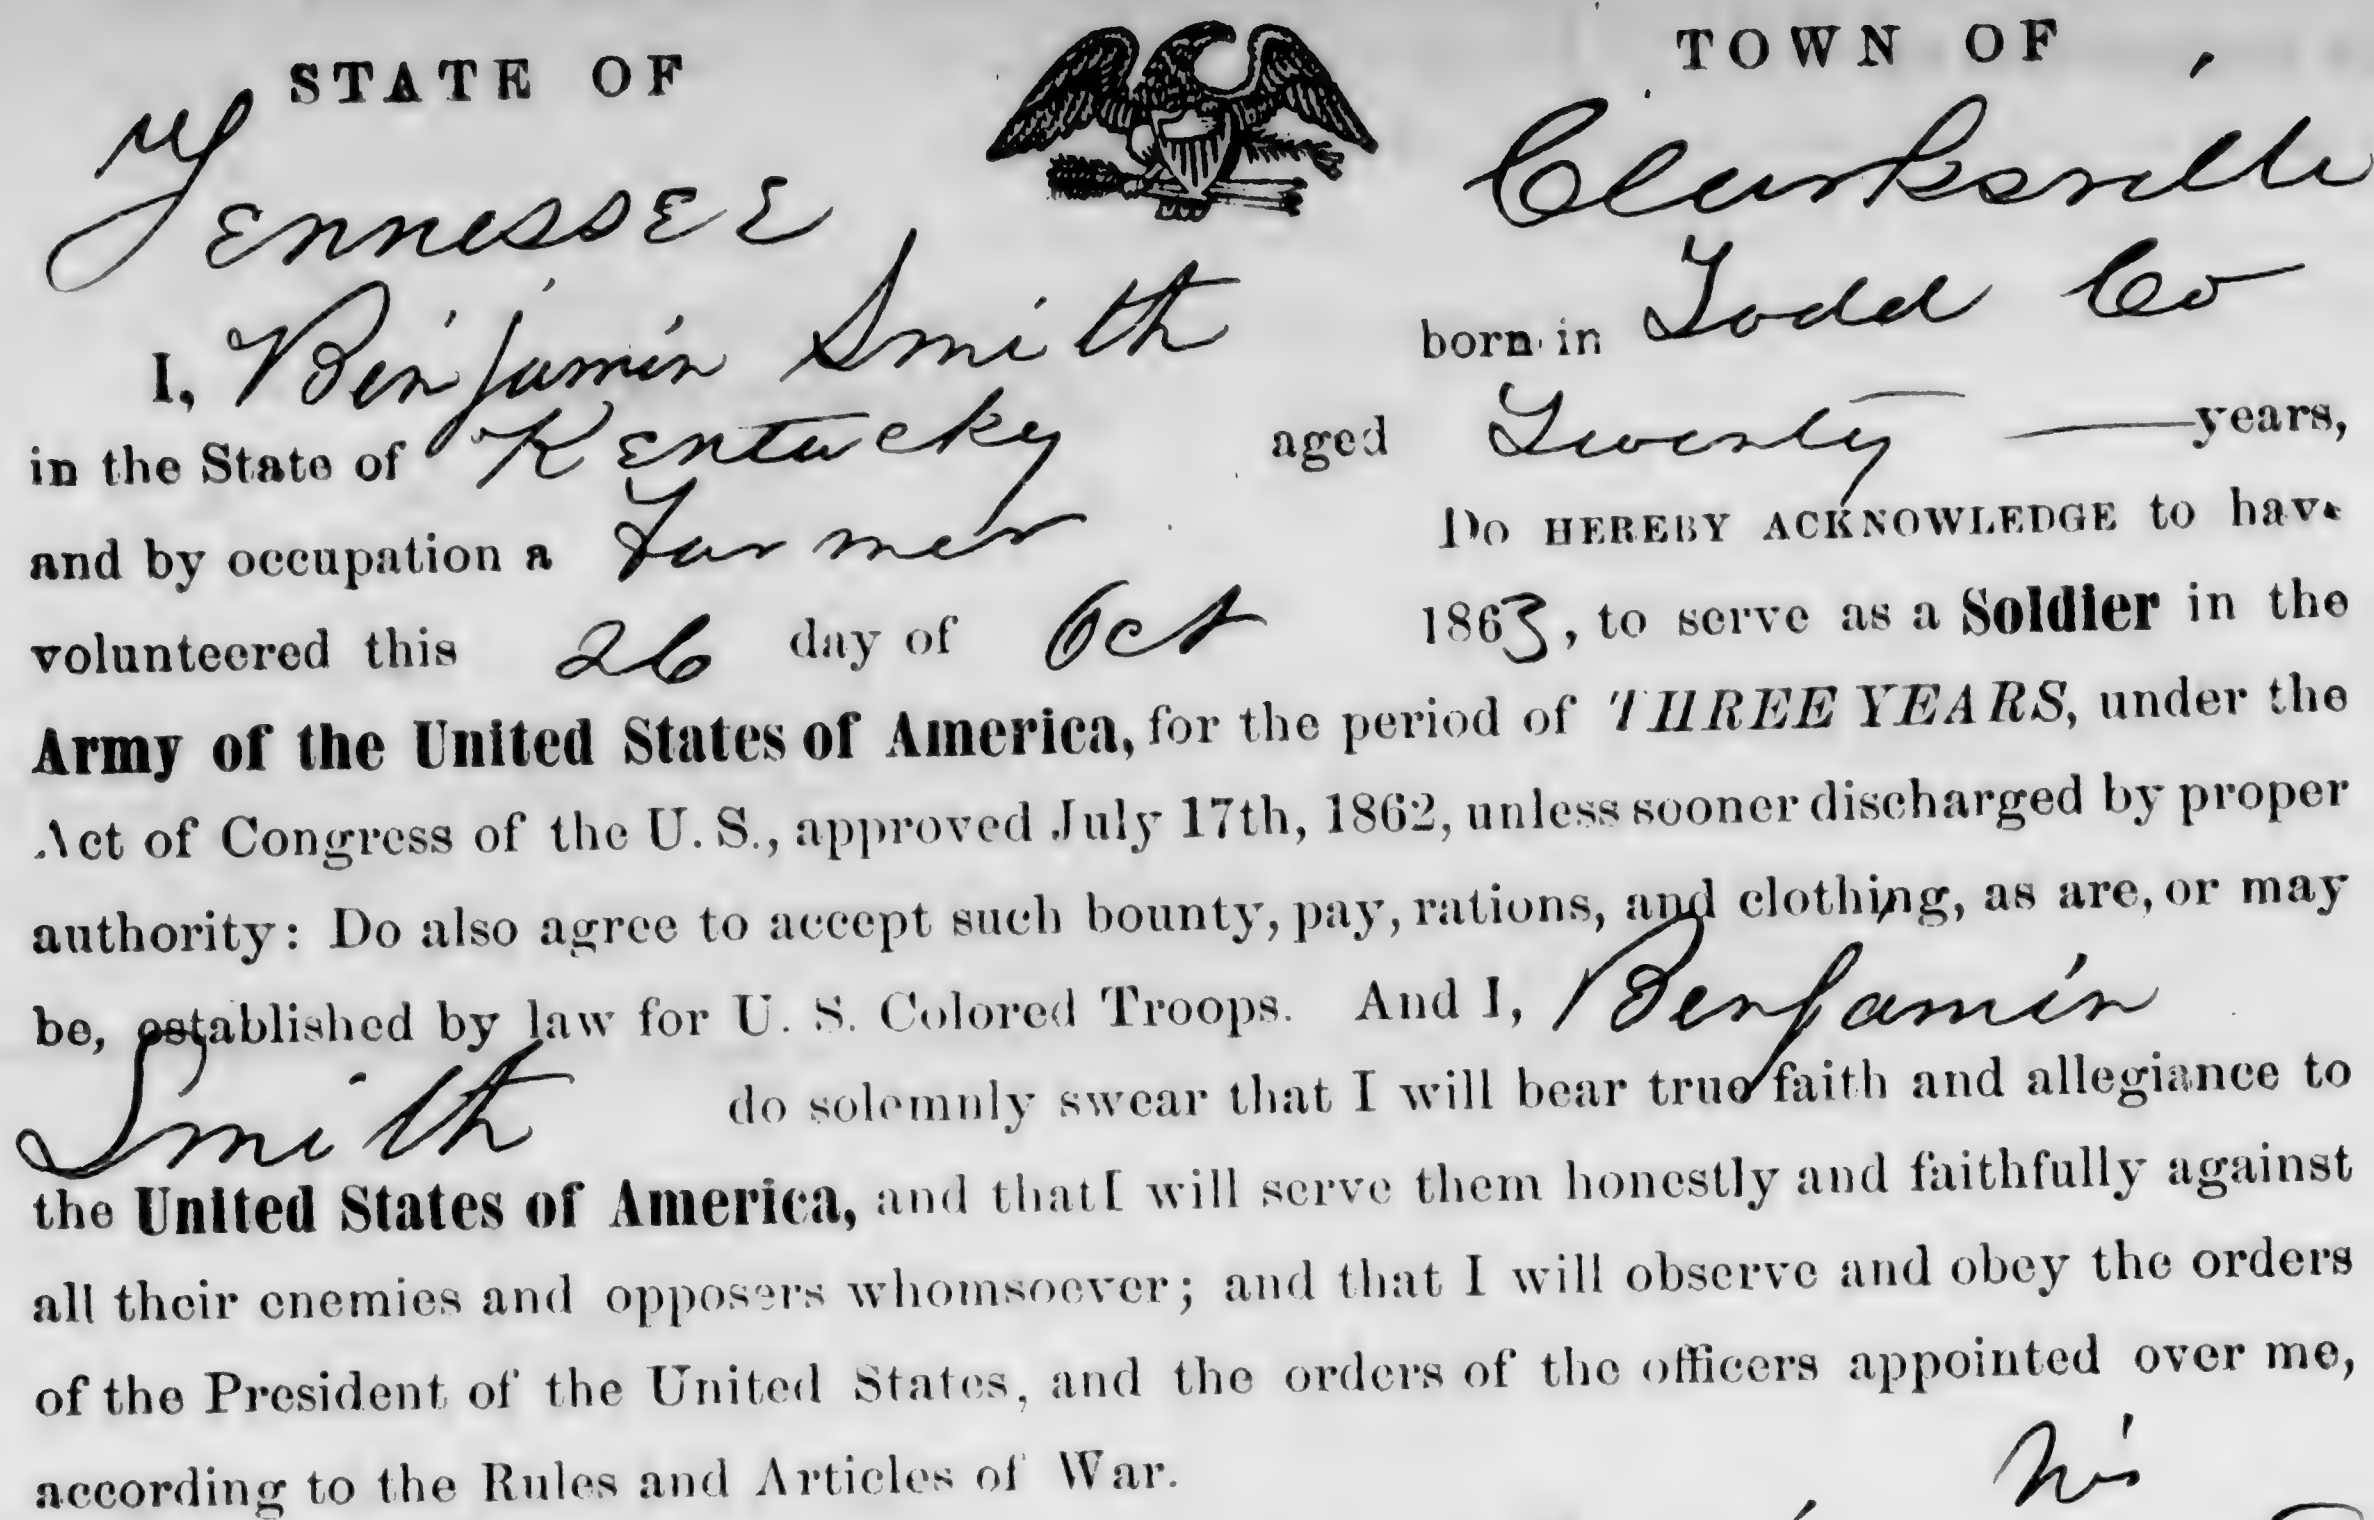 STATE OF TOWN OF
Tennessee Clarksville
I, Benjamin Smith born in Todd Co
in the State of Kentucky aged Twenty years,
and by occupation a Farmer Do HEREBY ACKNOWLEDGE to have
volunteered this 26 day of Oct 1863, to serve as a Soldier in the
Army of the United States of America, for the period of THREE YEARS, under the
Act of Congress of the U. S., approved July 17th, 1862, unless sooner discharged by proper
authority: Do also agree to accept such bounty, pay, rations, and clothing, as are, or may
be, established by law for U. S. Colored Troops. And I, Benjamin
Smith do solemnly swear that I will bear true faith and allegiance to
the United States of America, and that I will serve them honestly and faithfully against
all their enemies and opposers whomsoever; and that I will observe and obey the orders
of the President of the United States, and the orders of the officers appointed over me,
according to the Rules and Articles of War.
his